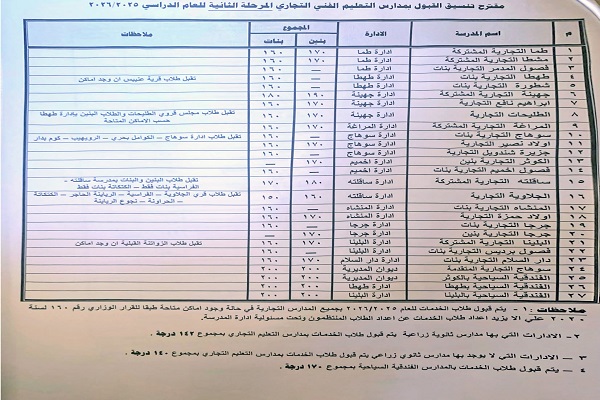 مقترح تنسيق القبول بمدارس التعليم الفني التجاري المرحلة الثانية للعام الدراسي ٢٠٢٦/٢٠٢٥
م اسم المدرسة الادارة المجموع ملاحظات
بنين بنات
١ طما التجارية المشتركة ادارة طما ١٧٠ ١٦٠
٢ مشطا التجارية المشتركة ادارة طما ١٧٠ ١٦٠
٣ فصول المدمر التجارية بنات ادارة طما — ١٦٠
٤ طهطا التجارية بنات ادارة طهطا — ١٦٠ تقبل طلاب قرية عنيبس ان وجد اماكن
٥ شطورة التجارية بنات ادارة طهطا — ١٦٠
٦ جهينة التجارية المشتركة ادارة جهينة ١٩٠ ١٨٠
٧ ابراهيم نافع التجارية ادارة جهينة
٨ الطليحات التجارية ادارة جهينة ١٧٠ ١٦٠ تقبل طلاب مجلس قروي الطليحات والطلاب البنين بإدارة طهطا حسب الاماكن المتاحة
٩ المراغة التجارية المشتركة ادارة المراغة ١٧٠ ١٦٠
١٠ سوهاج التجارية بنات ادارة سوهاج — ١٦٠ تقبل طلاب ادارة سوهاج – الكوامل بحري – الرويهب – كوم بدار
١١ اولاد نصير التجارية ادارة سوهاج
١٢ جزيرة شندويل التجارية ادارة سوهاج
١٣ الكوثر التجارية بنين ادارة اخميم ١٧٠ —
١٤ فصول اخميم التجارية بنات ادارة اخميم — ١٦٠
١٥ ساقلتة التجارية المشتركة ادارة ساقلته ١٨٠ ١٧٠ تقبل طلاب البنين والبنات بمدرسة ساقلته – الفراسية بنات فقط – الكتكاتة بنات فقط
١٦ الجلاوية التجارية ادارة ساقلته ١٦٠ ١٥٠ تقبل طلاب قرى الجلاوية – الفراسية – الرياينة الحاجر – الكتكاتة – الحراونة – نجوع الرياينة
١٧ المنشاه التجارية بنات ادارة المنشاه — ١٦٠
١٨ اولاد حمزة التجارية ادارة المنشاه ١٧٠ ١٦٠
١٩ جرجا التجارية بنات ادارة جرجا — ١٦٠
٢٠ جرجا التجارية بنين ادارة جرجا ١٧٠ —
٢١ البلينا التجارية المشتركة ادارة البلينا ١٧٠ ١٦٠ تقبل طلاب الزواتنة القبلية ان وجد اماكن
٢٢ فصول برديس التجارية بنات ادارة البلينا — ١٦٠
٢٣ دار السلام التجارية بنات ادارة دار السلام ١٧٠ ١٦٠
٢٤ سوهاج التجارية المتقدمة ديوان المديرية ٢٠٠ ٢٠٠
٢٥ الفندقية السياحية بالكوثر ديوان المديرية ٢٠٠ ٢٠٠
٢٦ الفندقية السياحية بطهطا ادارة طهطا ٢٠٠ ٢٠٠
٢٧ الفندقية السياحية بالبلينا ادارة البلينا ٢٠٠ ٢٠٠
ملاحظات :- ١ – يتم قبول طلاب الخدمات للعام ٢٠٢٦/٢٠٢٥ بجميع المدارس التجارية في حالة وجود اماكن متاحة طبقا للقرار الوزاري رقم ١٦٠ لسنة
٢٠٢٠ على الا يزيد اعداد طلاب الخدمات عن اعداد الطلاب المنتظمون وتحت مسئولية ادارة المدرسة.
٢ – الادارات التي بها مدارس ثانوية زراعية يتم قبول طلاب الخدمات بمدارس التعليم التجاري بمجموع ١٤٢ درجة .
٣ – الادارات التي لا يوجد بها مدارس ثانوي زراعي يتم قبول طلاب الخدمات بمدارس التعليم التجاري بمجموع ١٤٠ درجة .
٤ – يتم قبول طلاب الخدمات بالمدارس الفندقية السياحية بمجموع ١٧٠ درجة .